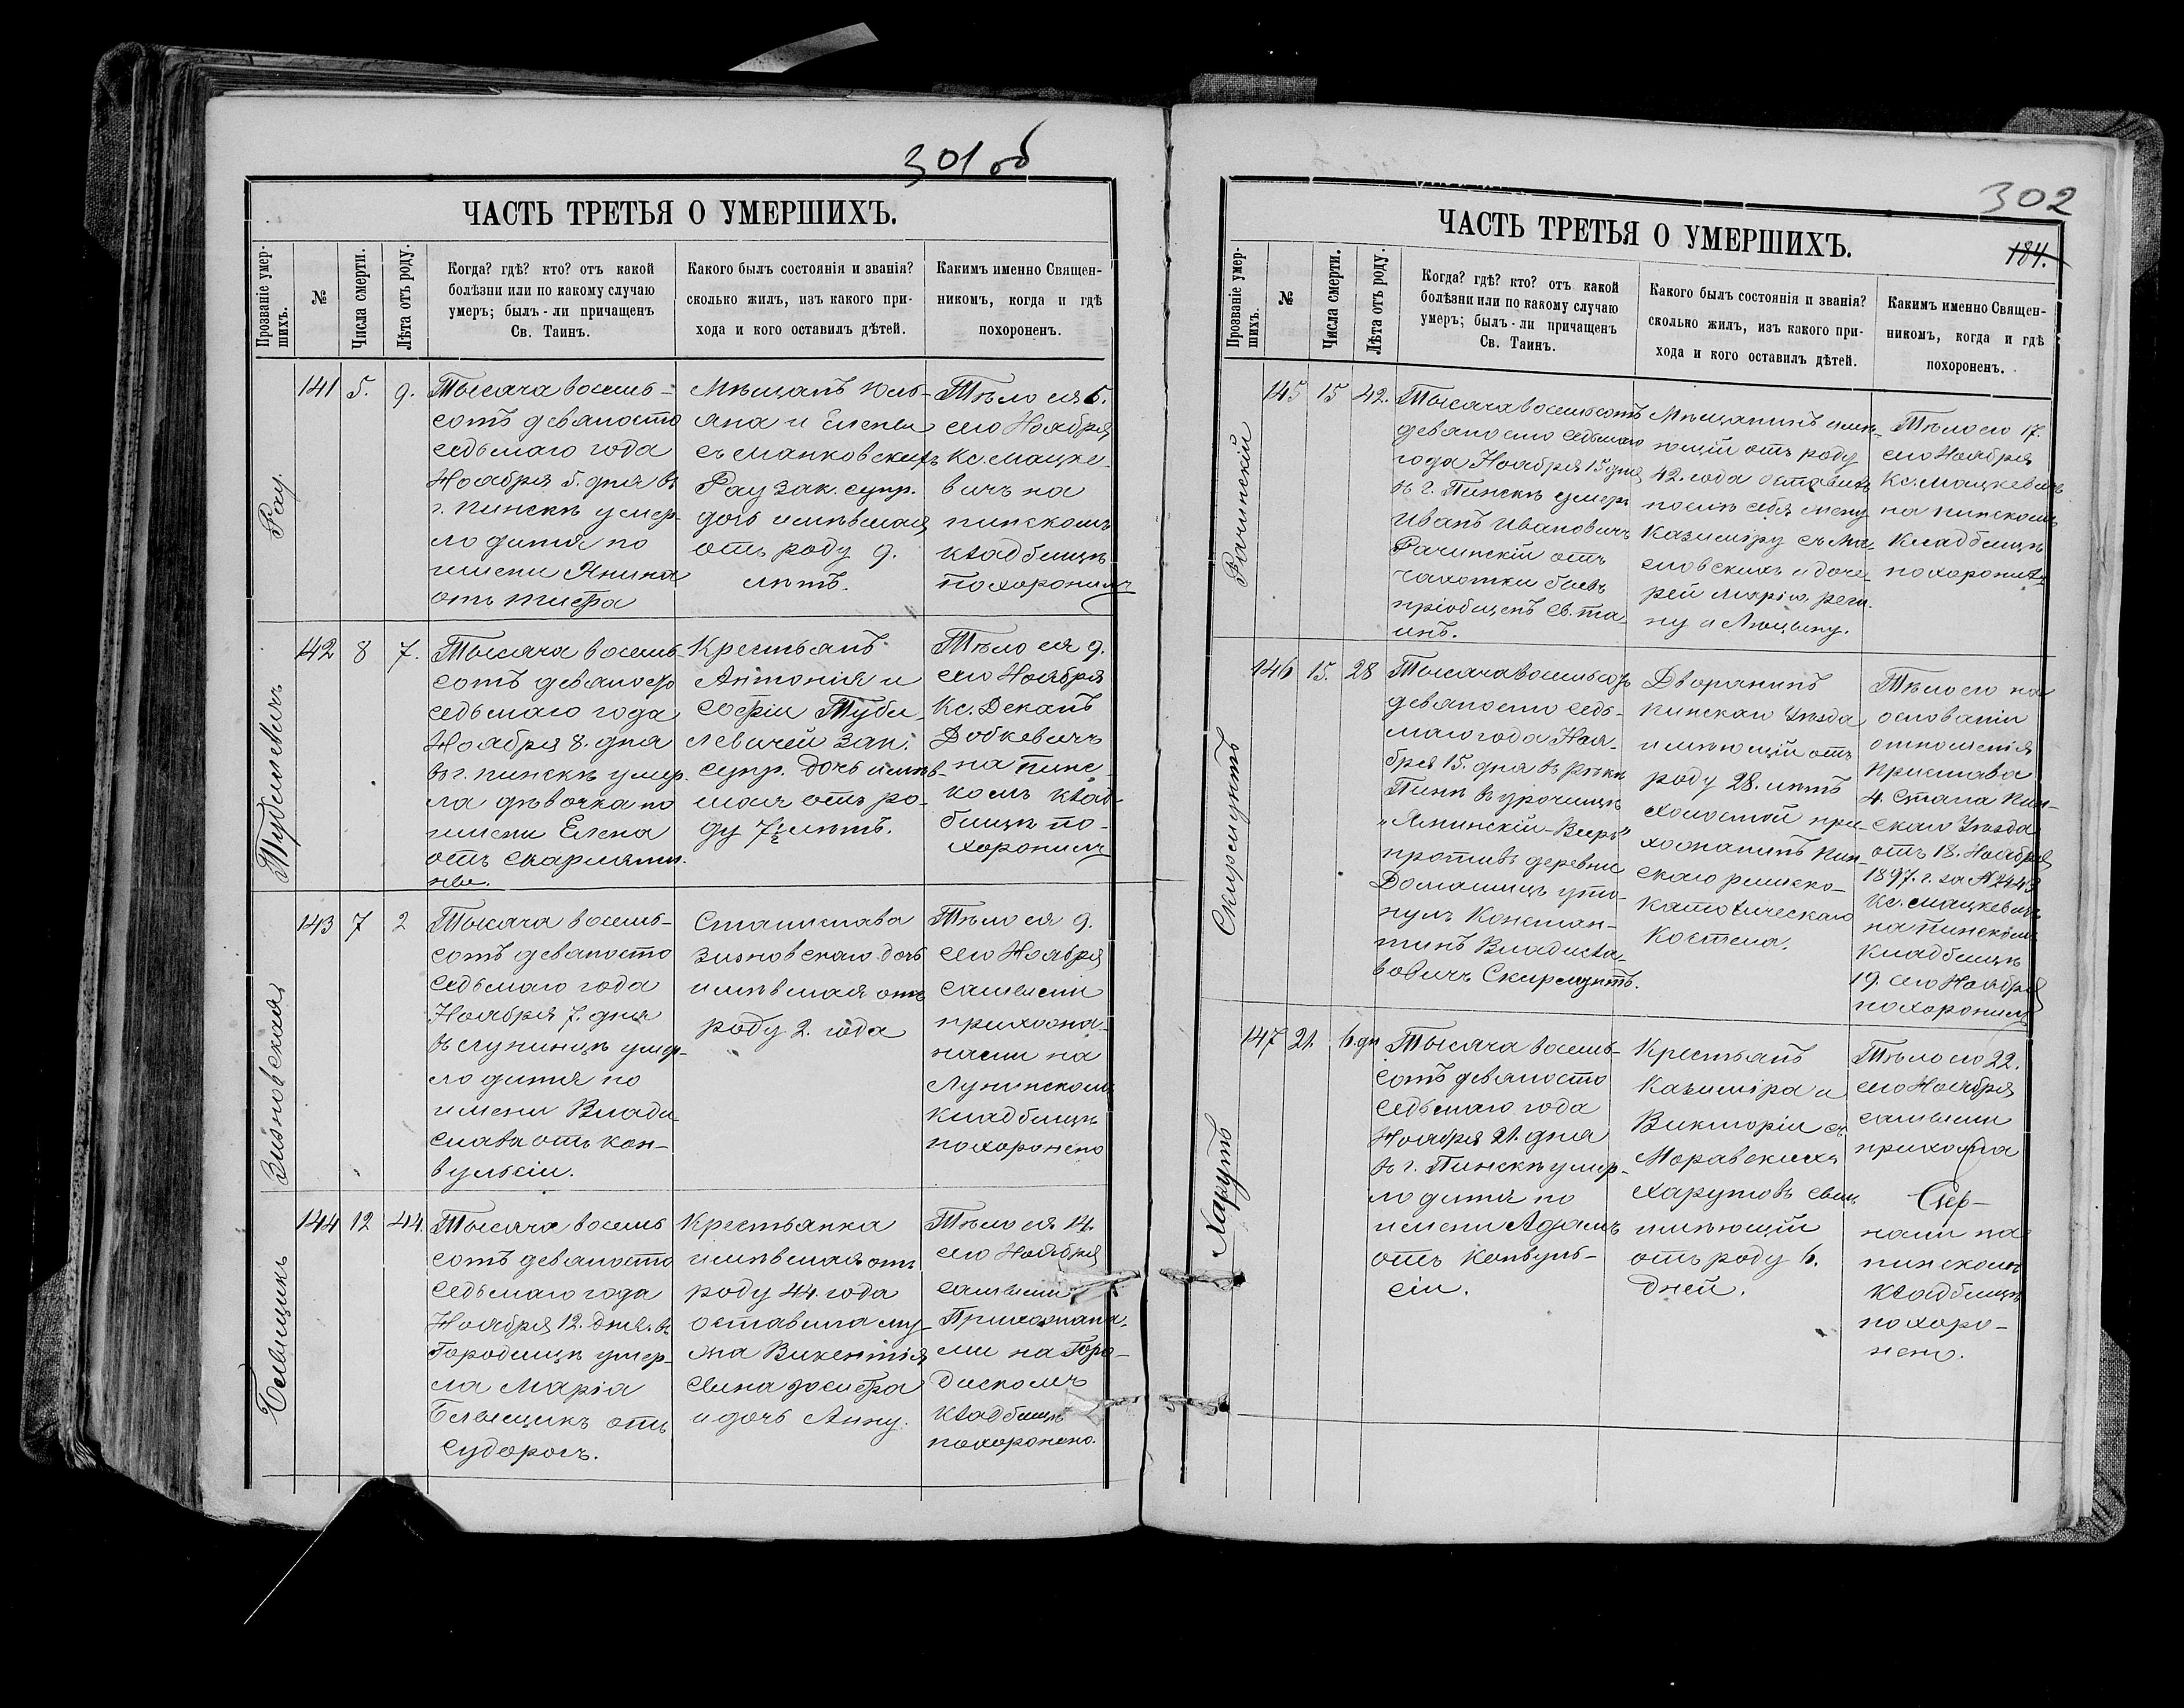 301 об
ЧАСТЬ ТРЕТЬЯ О УМЕРШИХЪ.
Прозваніе умер-
шихъ.
№
Числа смерти.
Лѣта отъ роду.
Когда? гдѣ? кто? отъ какой
болѣзни или по какому случаю
умеръ; былъ-ли причащенъ
Св. Таинъ.
Какого былъ состоянія и званія?
сколько жилъ, изъ какого при-
хода и кого оставилъ дѣтей.
Какимъ именно Священ-
никомъ, когда и гдѣ
похороненъ.
Рау.
141
5.
9.
Тысяча восемь-
сотъ девяносто
седьмаго года
Ноября 5. дня въ
г. Пинскѣ умер-
ло дитя по
имени Янина
отъ тифа
Мѣщанъ Юль-
яна и Елены
съ Манковскихъ
Рау зак. супр.
дочь имѣвшая
отъ роду 9.
лѣтъ.
Тѣло ея 6.
сего Ноября
Кс. Мацке-
вичъ на
пинскомъ
кладбищѣ
похоронилъ
Тубилевичъ
142
8
7.
Тысяча восемь-
сотъ девяносто
седьмаго года
Ноября 8. дня
въ г. Пинскѣ умер-
ла дѣвочка по
имени Елена
отъ скарляти-
ны.
Крестьянъ
Антонія и
Софіи Туби-
левичей зак.
супр. дочь имѣв-
шая отъ ро-
ду 7½ лѣтъ.
Тѣло ея 9.
сего Ноября
Кс. Деканъ
Добкевичъ
на Пинс-
комъ клад-
бищѣ по-
хоронилъ
Зизновская
143
7
2
Тысяча восемь-
сотъ девяносто
седьмаго года
Ноября 7. дня
въ Лунинцѣ умер-
ло дитя по
имени Влади-
слава отъ кон-
вульсіи.
Станислава
Зизновскаго дочь
имѣвшая отъ
роду 2. года
Тѣло ея 9.
сего Ноября
самыми
прихожа-
нами на
Лунинскомъ
кладбищѣ
похоронено
Бѣльщикъ
144
12
44.
Тысяча восемь
сотъ девяносто
седьмаго года
Ноября 12. дня въ
Городищѣ умер-
ла Марія
Бѣльщикъ отъ
судорогъ.
Крестьянка
имѣвшая отъ
роду 44. года
оставила му-
жа Викентія
сына Іосифа
и дочь Анну.
Тѣло ея 14.
сего Ноября
самыми
Прихожана-
ми на Горо-
дискомъ
кладбищѣ
похоронено.
302
184.
ЧАСТЬ ТРЕТЬЯ О УМЕРШИХЪ.
Прозваніе умер-
шихъ.
№
Числа смерти.
Лѣта отъ роду.
Когда? гдѣ? кто? отъ какой
болѣзни или по какому случаю
умеръ; былъ-ли причащенъ
Св. Таинъ.
Какого былъ состоянія и званія?
сколько жилъ, изъ какого при-
хода и кого оставилъ дѣтей.
Какимъ именно Священ-
никомъ, когда и гдѣ
похороненъ.
Рачинскій
145
15
42.
Тысяча восемьсотъ
девяносто седьмаго
года Ноября 15 дня
въ г. Пинскѣ умеръ
Иванъ Ивановичъ
Рачинскій отъ
чахотки бывъ
пріобщенъ св. та-
инъ.
Мѣщанинъ имѣ-
ющій отъ роду
42. года оставилъ
послѣ себя жену
Казиміру съ
и доче-
рей Марію, Реги-
ну и Люцыну.
Тѣло его 17.
сего Ноября
Кс. Мацкевичъ
на пинскомъ
кладбищѣ
похоронилъ
Скирмунтъ
146
15.
28
Тысяча восемьсотъ
девяносто седь-
маго года Ноя-
бря 15. дня въ рѣкѣ
Пинѣ въ урочищѣ
„Яминскій-Виръ"
противъ деревни
Домашицъ уто-
нулъ Констан-
тинъ Владисла-
вовичъ Скирмунтъ.
Дворянинъ
Пинскаго Уѣзда
имѣющій отъ
роду 28. лѣтъ
холостой при-
хожанинъ Пин-
скаго римско-
католическаго
костела.
Тѣло его на
основаніи
отношенія
Пристава
4. Стана Пин-
скаго Уѣзда
отъ 18. Ноября
1897. г. за № 2443
Кс. Мацкевичъ
на Пинскомъ
кладбищѣ
19. сего Ноября
похоронилъ
Харутъ
147
21.
6. дн
Тысяча восемь-
сотъ девяносто
седьмаго года
Ноября 21. дня
въ г. Пинскѣ умер-
ло дитя по
имени Адамъ
отъ конвуль-
сіи.
Крестьянъ
Казиміра и
Викторіи съ
Моравскихъ
Харутовъ сынъ
имѣющій
отъ роду 6.
дней.
Тѣло его 22.
сего Ноября
самыми
прихожа
нами на
пинскомъ
кладбищѣ
похоро-
нено.